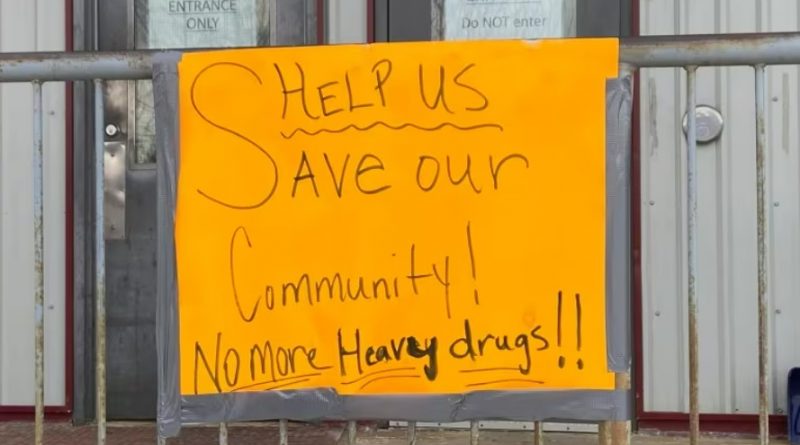 ENTRANCE
ONLY
Do NOT enter
HELP US
SAVE our
Community!
No more Heavey drugs!!